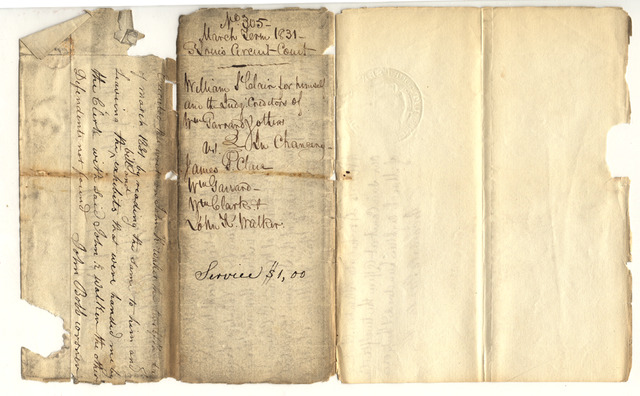 No 305-
March Term 1831-
St Louis Circuit Court
William St Clair for himself
and the Judg Creditors of
Wm Garrard & others
vs. In Chancery
James St Clair
Wm Garrard-
Wm Clark &
John K. Walker.
Service $1,00
of March 1831 by reading the same to him and
leaving the bill and exhibits that were handed me by
the Clerk with said John K Walker the other
Defendents not found John Bobb coroner